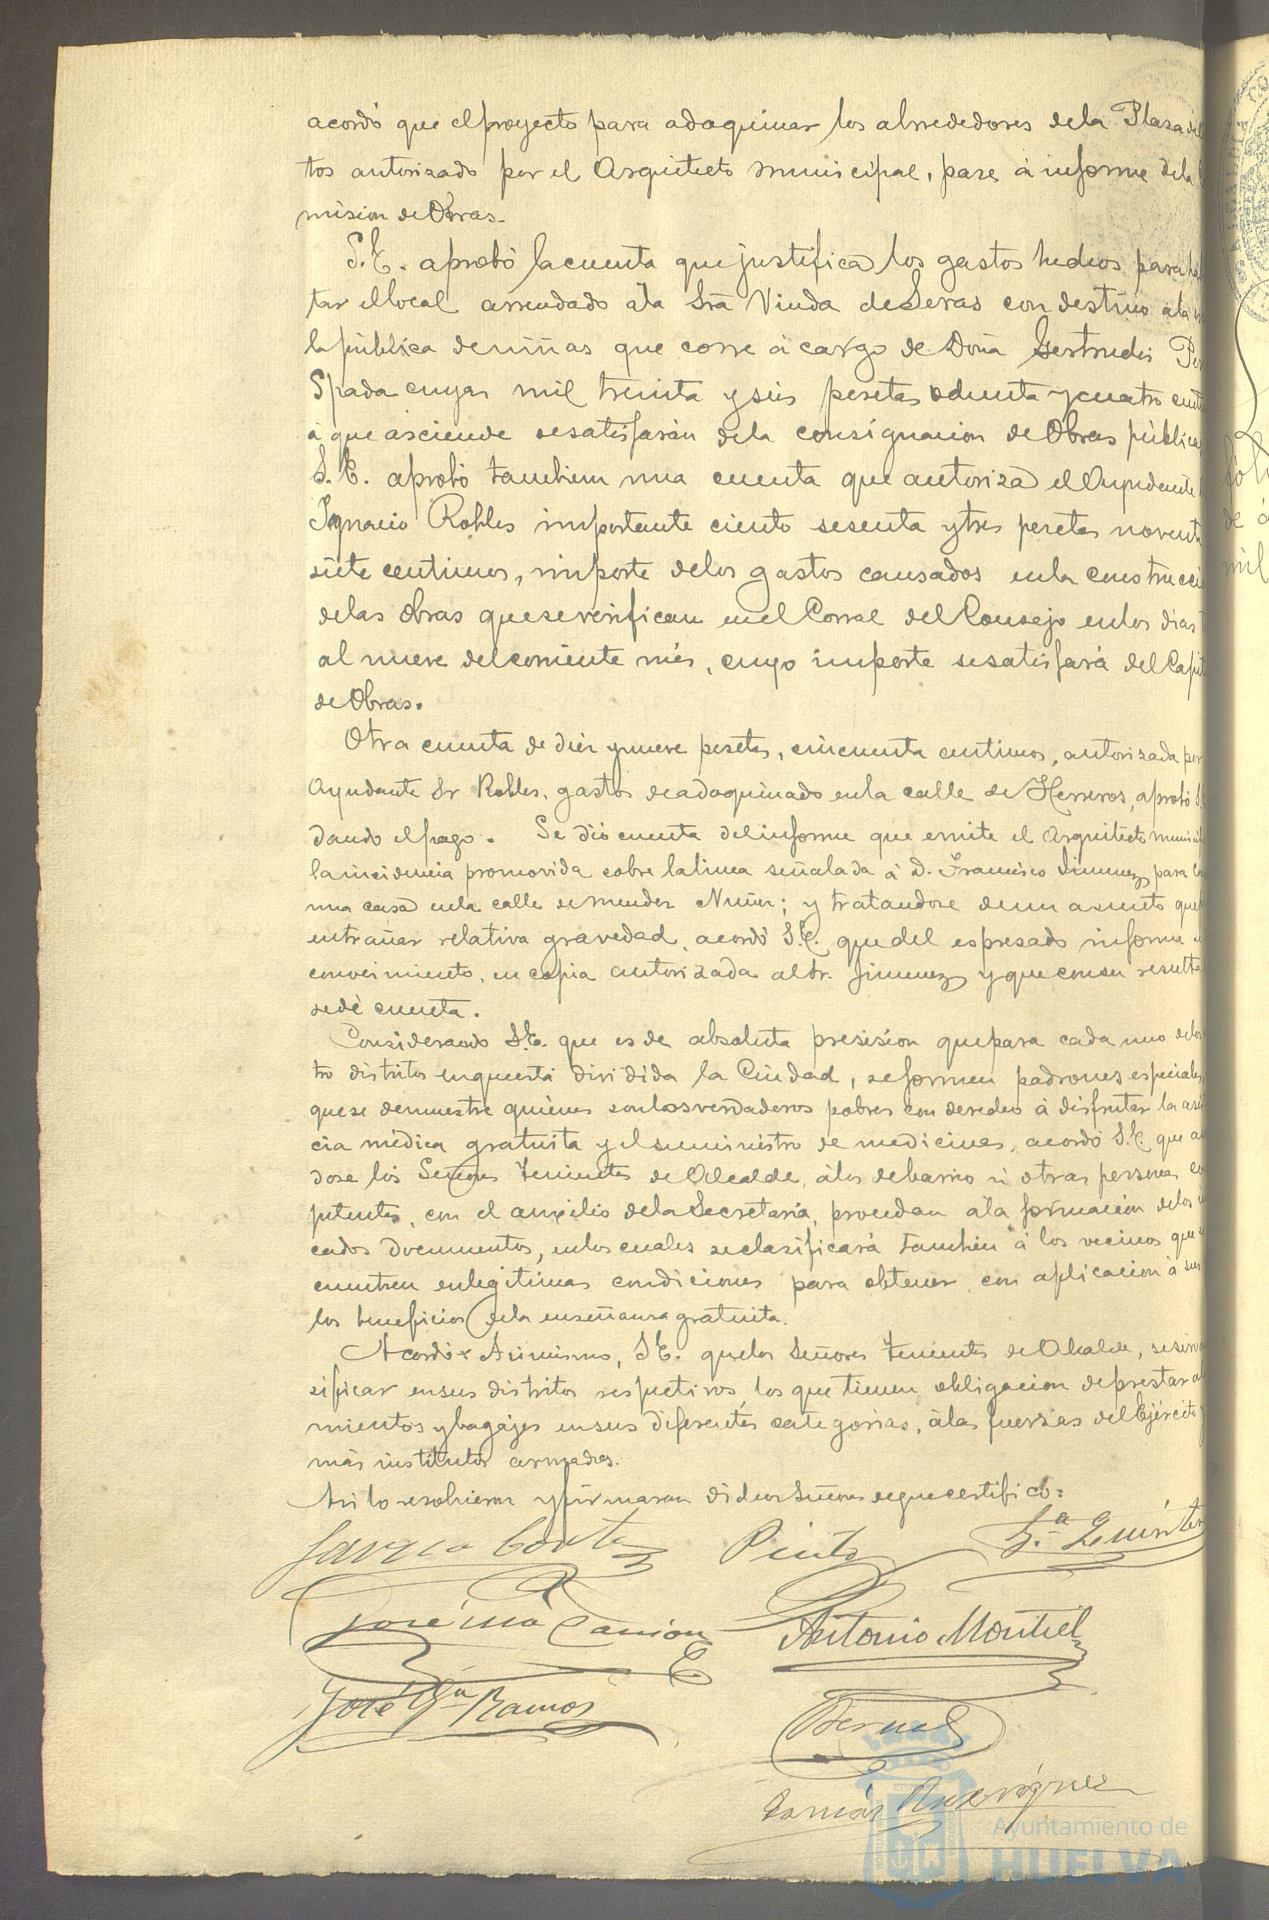 acordó que el proyecto para adoquinar los alrrededores dela Plaza del
tos autorizado por el Arquitecto municipal, pase á informe dela
mision de Obras.
S.E. aprobó la cuenta que justifica los gastos hechos para
tar el local arrendado á la Sra Viuda de Seras con destino á la
la pública de niñas que corre á cargo de Doña Gertrudis
Spada cuyas mil treinta y seis pesetas ochenta y cuatro
á que asciende se satisfarán dela consignacion de Obras públicas
S.E. aprobó tambien una cuenta que autoriza el Ayudante
Ignacio Robles importante ciento sesenta y tres pesetas noventa
siete centimos, importe delos gastos causados en la construcci
delas obras que se verifican en el Corral del Consejo en los dias
al nueve del corriente més, cuyo importe se satisfará del Capit
de Obras.
Otra cuenta de diez y nueve pesetas, cincuenta centimos, autorizada por
Ayudante Sr Robles, gastos de adoquinado en la calle de Herreros, aprobó S.E.
dando el pago. Se dió cuenta del informe que emite el Arquitecto
la incidencia promovida sobre la linea señalada á D. Francisco Jimenez para
una casa en la calle de Mendez Nuñez; y tratandose de un asunto que
entrañar relativa gravedad, acordó S.E. que del espresado informe
conocimiento, en copia autorizada al Sr. Jimenez y que con su resulta
se dé cuenta.
Considerando S.E. que es de absoluta presision que para cada uno delos
tro distritos en que está dividida la Ciudad, se formen padrones especiales
que se demuestre quienes son los verdaderos pobres con derecho á disfrutar la
cia médica gratuita y el suministro de medicinas, acordó S.E. que
dose los Señores Tenientes de Alcalde, á los de barrio ú otras personas
petentes, con el auxilio dela Secretaría, procedan á la formación delos
cados documentos, en los cuales se clasificará tambien á los vecinos que
cuentren en legitimas condiciones para obtener, con aplicacion á sus
los beneficios dela enseñanza gratuita.
Acordó Asimismo, S.E. que los Señores Tenientes de Alcalde,
sificar en sus distritos respectivos, los que tienen obligacion de prestar
mientos y bagajes en sus diferentes categorias, á las fuerzas del Ejército
más institutos armados.
Asi lo resolvieron y firmaron dichos Señores de que certifico:
Garcia Cortes Pinto Ga Quintero
José Ma Carrion Antonio Montiel
José Ma Ramos
Bernal
Tomás Rodriguez
Ayuntamiento de
HUELVA